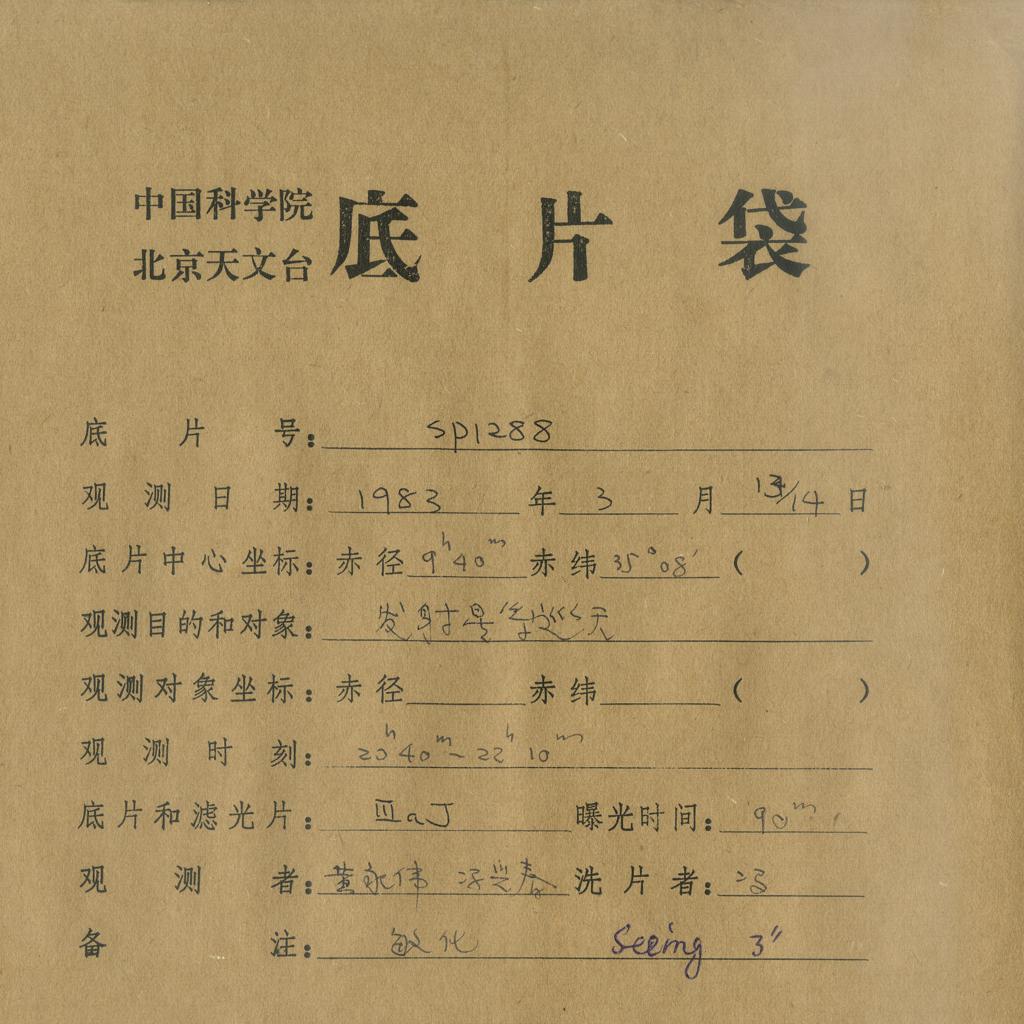 中国科学院
北京天文台
底片袋
底片号: SP1288
观测日期: 1983年3月13/14日
底片中心坐标: 赤径 9h40m 赤纬 35°08′ ( )
观测目的和对象: 发射星系巡天
观测对象坐标: 赤径 赤纬 ( )
观测时刻: 20h40m~22h10m
底片和滤光片: ⅢaJ 曝光时间: 90m
观测者: 黄永伟 冯兴春 洗片者: 冯
备注: 敏化 Seeing 3″